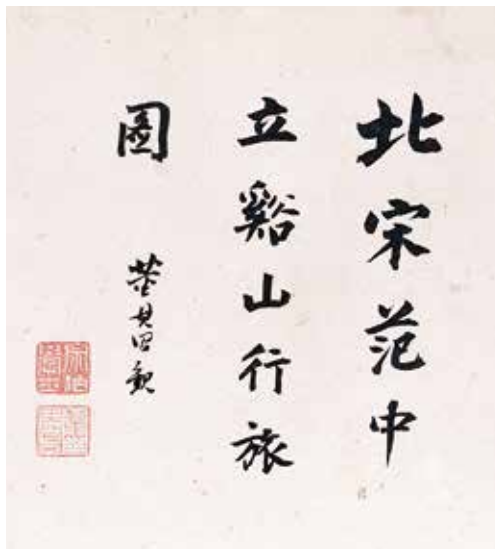 北宋范中
立谿山行旅
圖
董其昌觀